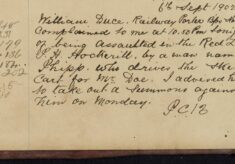 6th Sept 1902
William Duce. Railway Porter
Complained to me at 10.10pm
of being assaulted in the Red L
P. H. Hockerill. by a man nam
Phipp. who drives the
Cart for Mr Dae. I advised h
to take out a Summons agains
them on Monday.
P.C. 12